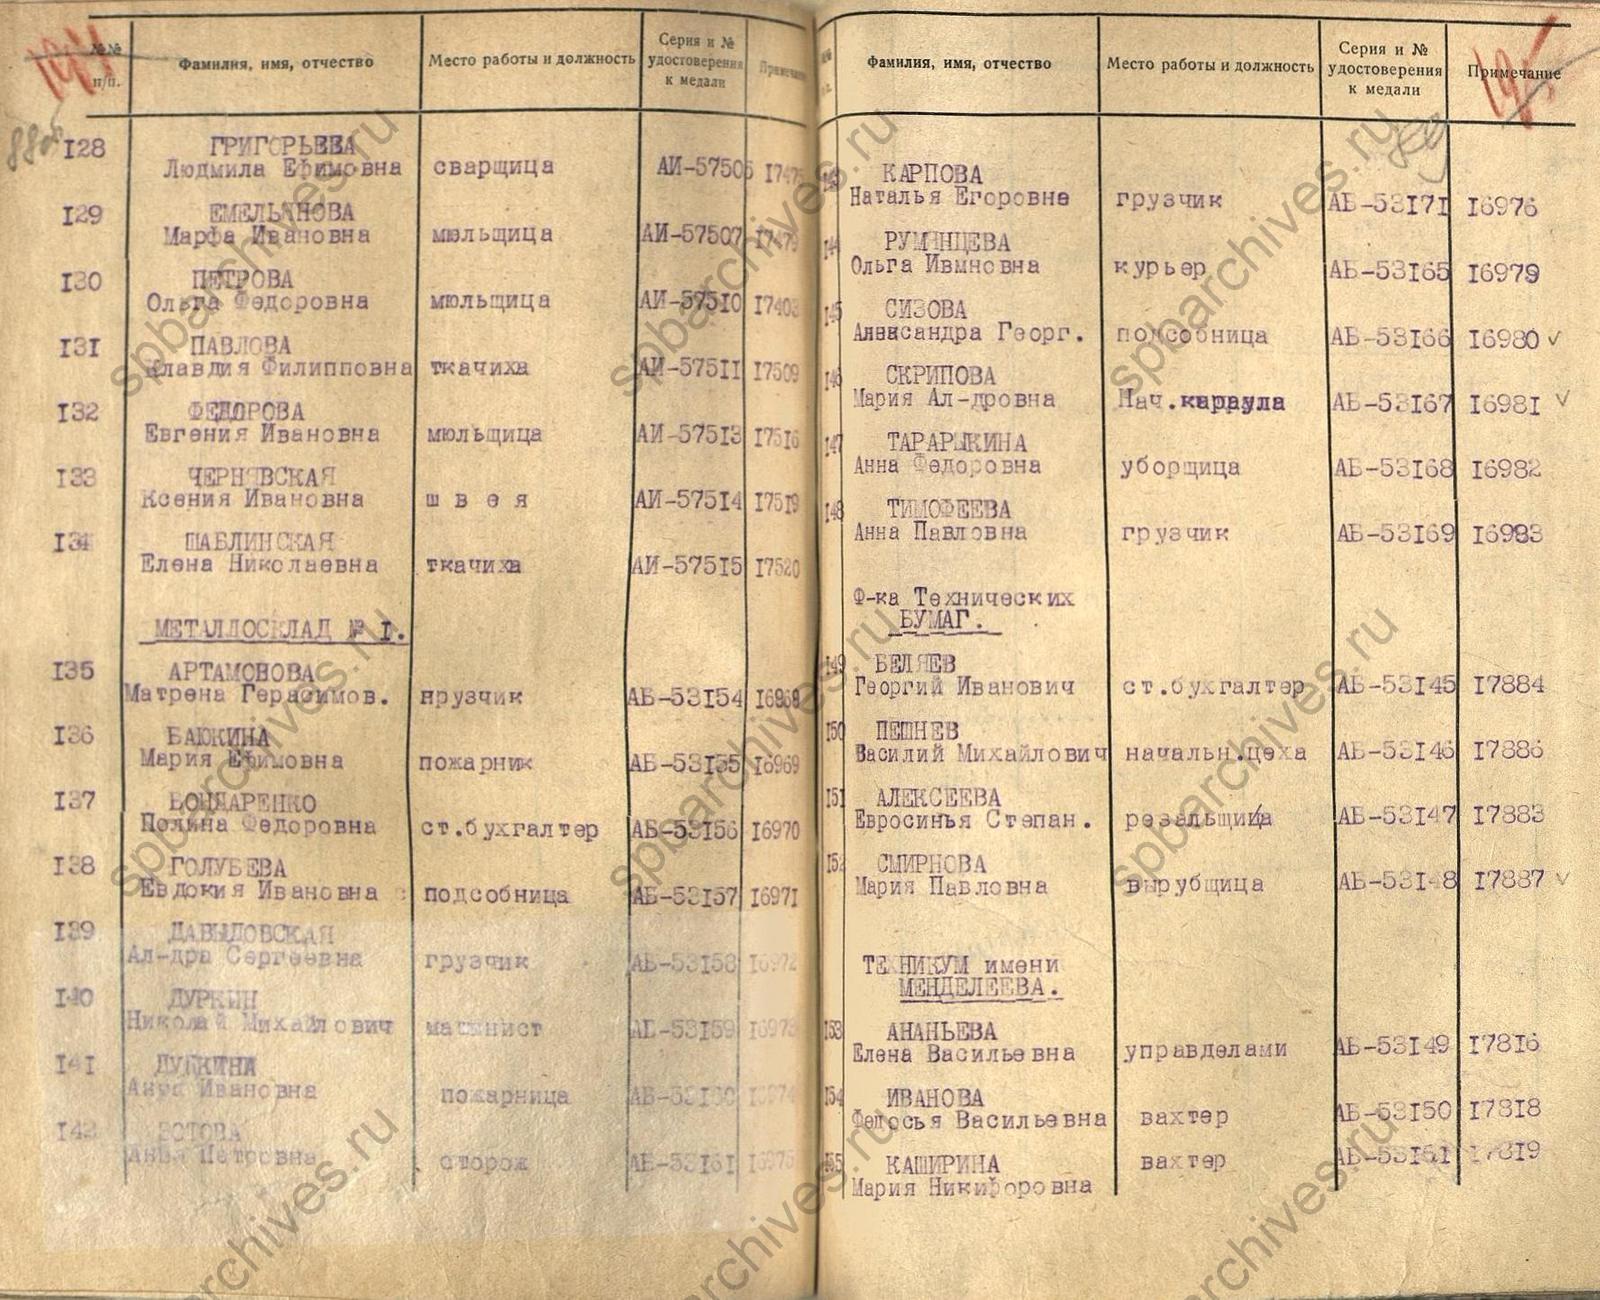 №№ п/п. Фамилия, имя, отчество Место работы и должность Серия и № удостоверения к медали Примечание
128 ГРИГОРЬЕВА
Людмила Ефимовна сварщица АИ-57506
129 ЕМЕЛЬЯНОВА
Марфа Ивановна мюльщица АИ-57507 17479
130 ПЕТРОВА
Ольга Федоровна мюльщица АИ-57510
131 ПАВЛОВА
Клавдия Филипповна ткачиха АИ-57511 17509
132 ФЕДОРОВА
Евгения Ивановна мюльщица АИ-57513 17516
133 ЧЕРНЯВСКАЯ
Ксения Ивановна ш в е я АИ-57514 17519
134 ШАБЛИНСКАЯ
Елена Николаевна ткачиха АИ-57515 17520
МЕТАЛЛОСКЛАД № 1.
135 АРТАМОНОВА
Матрена Герасимов. нрузчик АБ-53154 16968
136 БАЮКИНА
Мария Ефимовна пожарник АБ-53155 16969
137 БОНДАРЕНКО
Полина Федоровна ст.бухгалтер АБ-53156 16970
138 ГОЛУБЕВА
Евдокия Ивановна подсобница АБ-53157 16971
139 ДАВЫДОВСКАЯ
Ал-дра Сергеевна грузчик АБ-53158 16972
140 ДУРКИН
Николай Михайлович машинист АБ-53159 16973
141
Анна Ивановна пожарница АБ-53160 16974
142
Анна Петровна сторож АБ-53161 16975
Фамилия, имя, отчество Место работы и должность Серия и № удостоверения к медали Примечание
КАРПОВА
Наталья Егоровне грузчик АБ-53171 16976
144 РУМЯНЦЕВА
Ольга Ивмновна курьер АБ-53165 16979
145 СИЗОВА
Александра Георг. подсобница АБ-53166 16980 ✓
146 СКРИПОВА
Мария Ал-дровна Нач.караула АБ-53167 16981 ✓
147 ТАРАРЫКИНА
Анна Федоровна уборщица АБ-53168 16982
148 ТИМОФЕЕВА
Анна Павловна грузчик АБ-53169 16983
Ф-ка Технических
БУМАГ.
149 БЕЛЯЕВ
Георгий Иванович ст.бухгалтер АБ-53145 17884
150 ПЕШНЕВ
Василий Михайлович начальн.цеха АБ-53146 17886
151 АЛЕКСЕЕВА
Евросинья Степан. резальщица АБ-53147 17883
152 СМИРНОВА
Мария Павловна вырубщица АБ-53148 17887 ✓
ТЕХНИКУМ имени
МЕНДЕЛЕЕВА.
153 АНАНЬЕВА
Елена Васильевна управделами АБ-53149 17816
154 ИВАНОВА
Федосья Васильевна вахтер АБ-53150 17818
155 КАШИРИНА вахтер АБ-53151 17819
Мария Никифоровна
spbarchives.ru